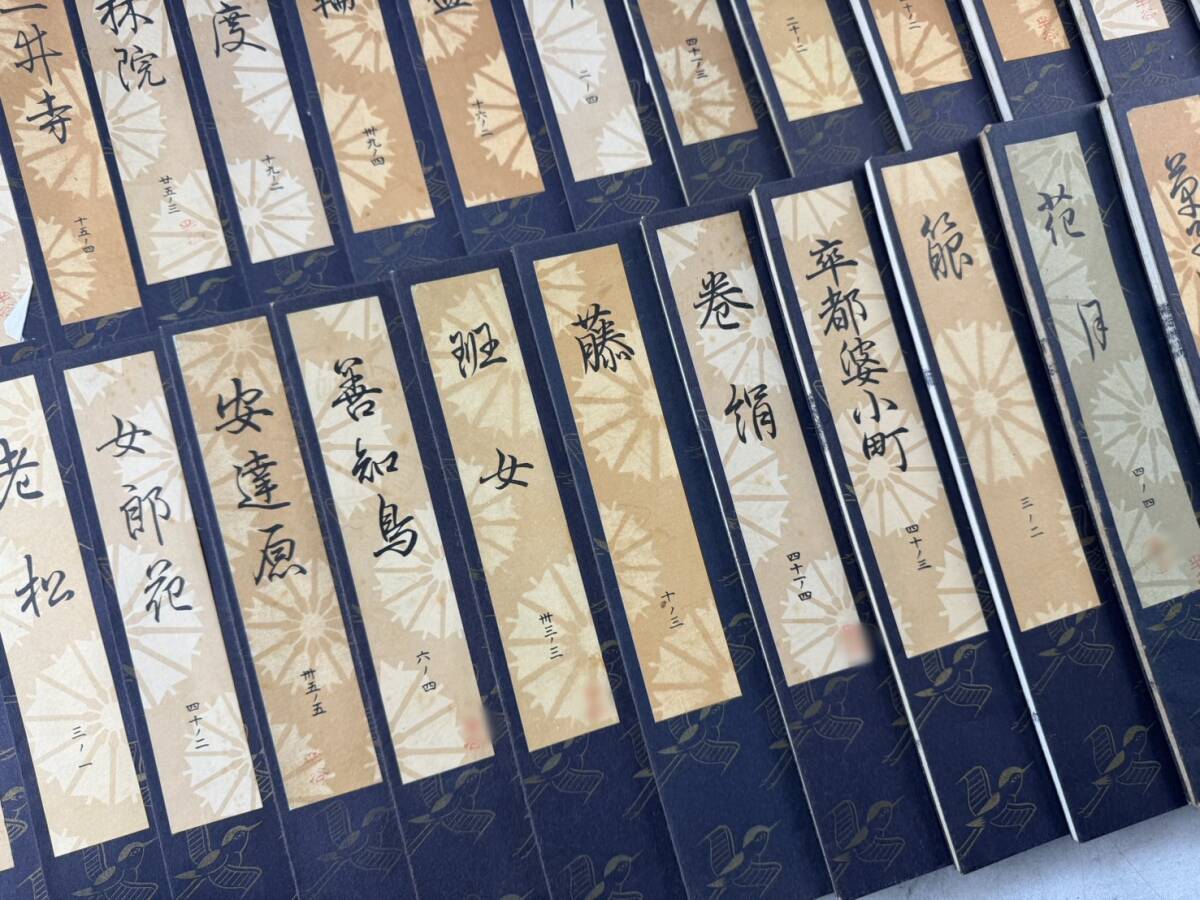 井寺
十五ノ四
林院
廿五ノ三
度
十九ノ二
輪
卅九ノ四
十六ノ二
二ノ四
四十一ノ三
二十ノ二
老松
三ノ一
女郎花
四十ノ二
安達原
卅五ノ五
善知鳥
六ノ四
班女
卅三ノ三
藤
十ノ三
巻絹
四十一ノ四
卒都婆小町
四十ノ三
箙
三ノ二
花月
四ノ四
草